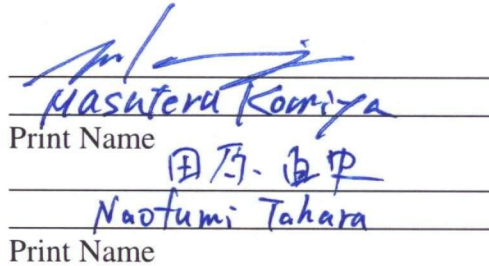 Masuteru Komiya
Print Name
田原 直史
Naofumi Tahara
Print Name